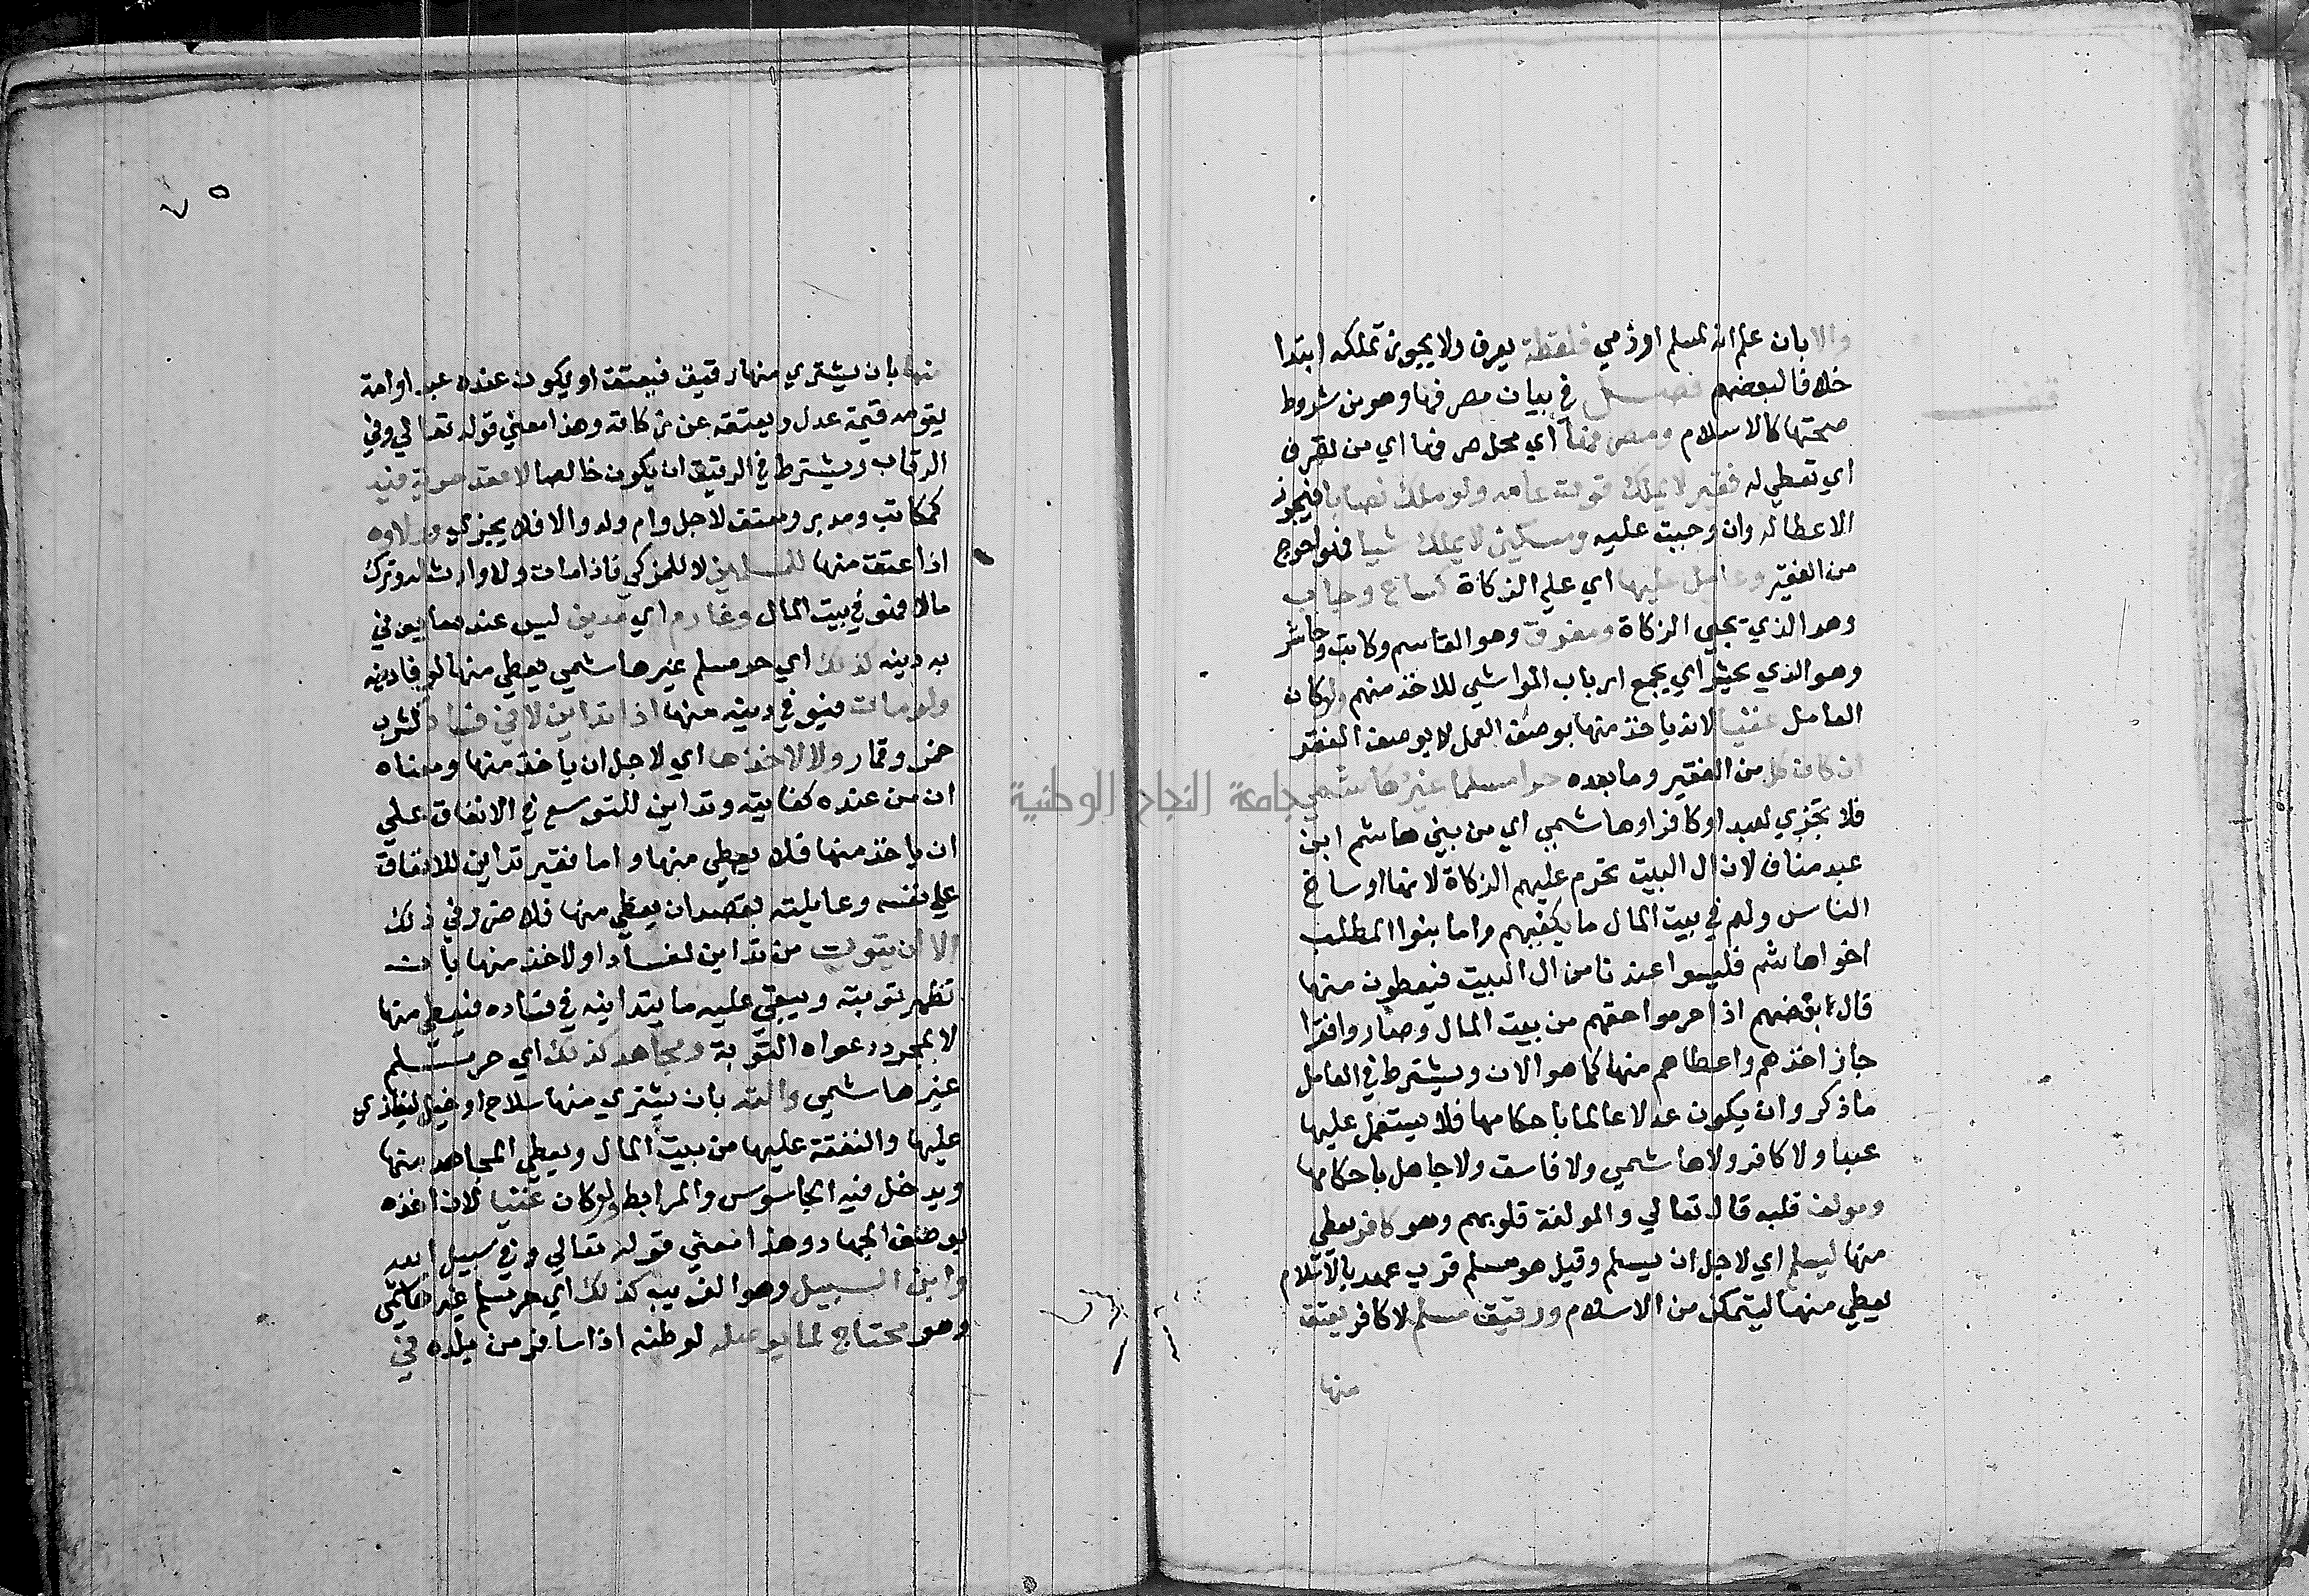 والا بان علم انه لمسلم او ذمي فلقطة يعرف ولا يجوز تملكه ابتدا
خلافا لبعضهم فصل في بيان مصرفها وهو من شروط
صحتها كالاسلام ومصرفها اي محل صرفها اي من تصرف
اي تعطي له فقير لا يملك قوت عامه ولو ملك نصابا فيجوز
الاعطا له وان وجبت عليه ومسكين لا يملك شيا فهو احوج
من الفقير وعامل عليها اي علي الزكاة كساع وجاب
وهو الذي يجبي الزكاة ومفرق وهو القاسم وكاتب وحاشر
وهو الذي يحشر اي يجمع ارباب المواشي للاخذ منهم ولو كان
العامل غنيا لانه ياخذ منها بوصف العمل لا بوصف الفقر
ان كان كل من الفقير وما بعده حرا مسلما غير هاشمي
فلا تجزي لعبد او كافر او هاشمي اي من بني هاشم ابن
عبد مناف لان ال البيت تحرم عليهم الزكاة لانها اوساخ
الناس ولهم في بيت المال ما يكفيهم واما بنوا المطلب
اخوا هاشم فليسوا عندنا من ال البيت فيعطون منها
قال بعضهم اذا حرموا حقهم من بيت المال وصاروا فقرا
جاز اخذهم واعطاهم منها كما هو الان ويشترط في العامل
ما ذكر وان يكون عدلا عالما باحكامها فلا يستعمل عليها
عبدا ولا كافر ولا هاشمي ولا فاسق ولا جاهل باحكامها
ومولف قلبه قال تعالي والمولفة قلوبهم وهو كافر يعطي
منها ليسلم اي لاجل ان يسلم وقيل هو مسلم قريب عهد بالاسلام
يعطي منها ليتمكن من الاسلام ورقيق مسلم لا كافر يعتق
منها
٧٥
منها بان يشتري منها رقيق فيعتق او يكون عنده عبد او امة
يقومه قيمة عدل ويعتقه عن زكاته وهذا معني قوله تعالي وفي
الرقاب ويشترط في الرقيق ان يكون خالصا لا عقد حرية فيه
كمكاتب ومدبر ومعتق لاجل وام ولد والا فلا يجزي وولاوه
اذا عتق منها للمسلمين لا للمزكي فاذا مات ولا وارث له وترك
مالا فهو في بيت المال وغارم اي مدين ليس عنده ما يوفي
به دينه كذلك اي حر مسلم غير هاشمي يعطي منها لوفا دينه
ولو مات فيوفي دينه منها اذا تداين لا في فساد كشرب
خمر وقمار ولا لاخذها اي لاجل ان ياخذ منها ومعناه
ان من عنده كفايته وتداين للتوسع في الانفاق علي
ان ياخذ منها فلا يعطي منها واما فقير تداين للانفاق
علي نفسه وعايلته بقصد ان يعطي منها فلا ضرر في ذلك
الا ان يتوب من تداين لفساد او لاخذ منها بان
تظهر توبته ويبقي عليه ما يتداينه في فساده فيعطي منها
لا بمجرد دعواه التوبة ومجاهد كذلك اي حر مسلم
غير هاشمي والته بان يشتري منها سلاح او خيل ليغازي
عليها والنفقة عليها من بيت المال ويعطي المجاهد منها
ويدخل فيه الجاسوس والمرابط ولو كان غنيا لان اخذه
بوصف الجهاد وهذا معني قوله تعالي وفي سبيل الله
وابن السبيل وهو الغريب كذلك اي حر مسلم غير هاشمي
وهو محتاج لما يوصله لوطنه اذا سافر من بلده في
جامعة النجاح الوطنية